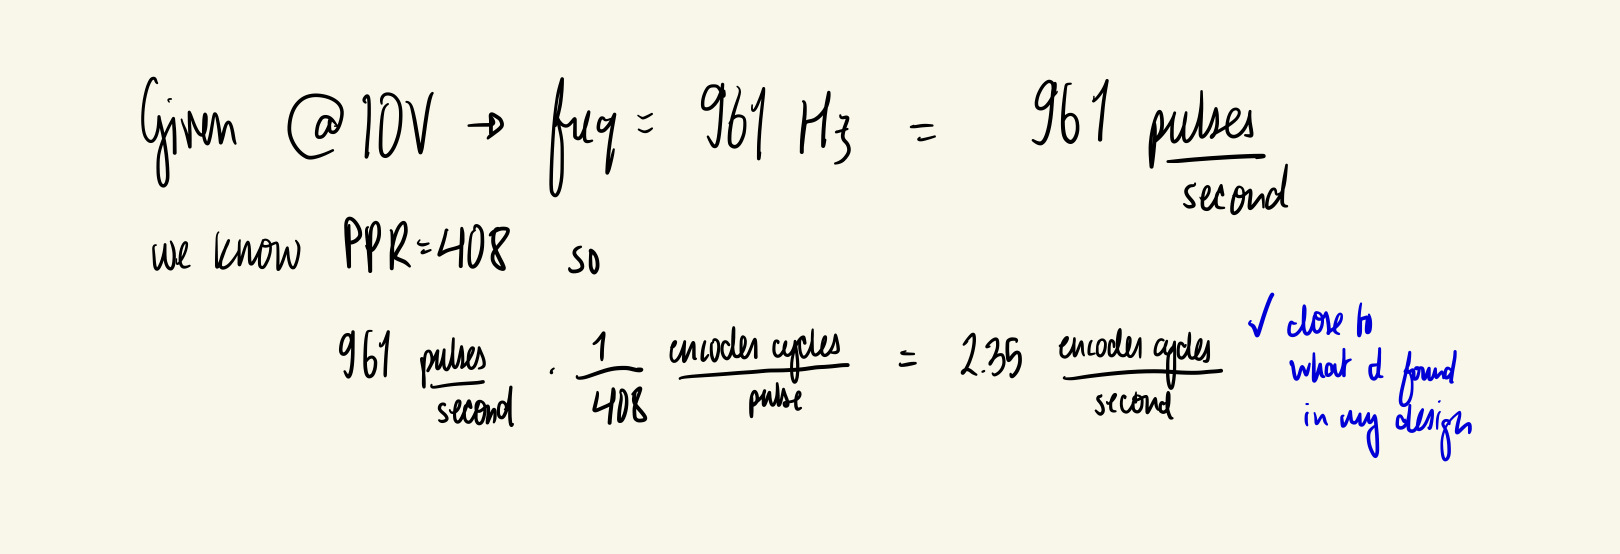 Given @ 10V → freq = 961 Hz = 961 pulses/second
we know PPR=408 so
961 pulses/second · 1/408 encoder cycles/pulse = 2.35 encoder cycles/second
✓ close to
what I found
in my design